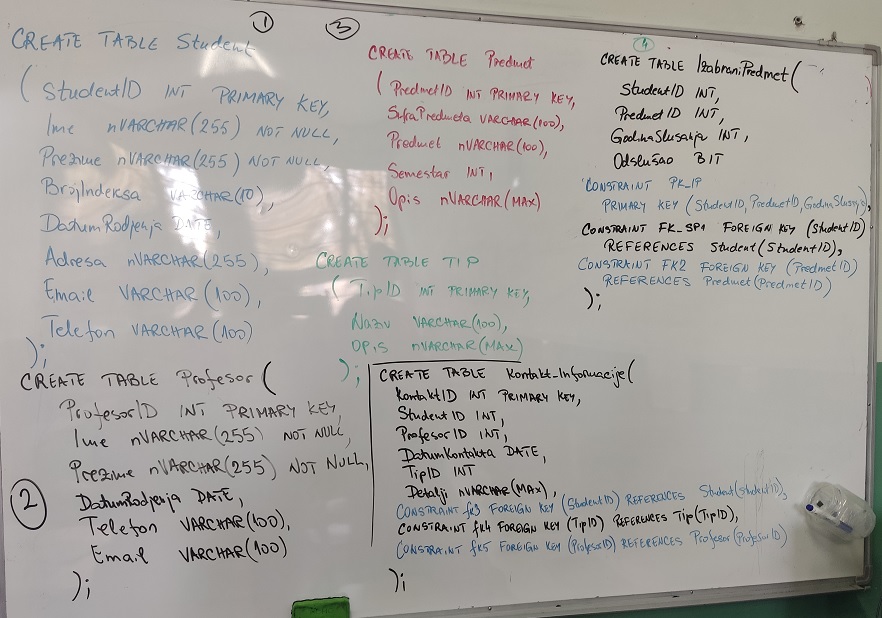 1
CREATE TABLE Student
( StudentID INT PRIMARY KEY,
Ime nVARCHAR(255) NOT NULL,
Prezime nVARCHAR(255) NOT NULL,
BrojIndeksa VARCHAR(10),
DatumRodjenja DATE,
Adresa nVARCHAR(255),
Email VARCHAR(100),
Telefon VARCHAR(100)
);
2
CREATE TABLE Profesor(
ProfesorID INT PRIMARY KEY,
Ime nVARCHAR(255) NOT NULL,
Prezime nVARCHAR(255) NOT NULL,
DatumRodjenja DATE,
Telefon VARCHAR(100),
Email VARCHAR(100)
);
3
CREATE TABLE Predmet
( PredmetID INT PRIMARY KEY,
SifraPredmeta VARCHAR(100),
Predmet nVARCHAR(100),
Semestar INT,
Opis nVARCHAR(MAX)
);
CREATE TABLE TIP
( TipID INT PRIMARY KEY,
Naziv VARCHAR(100),
OPIS nVARCHAR(MAX)
);
4
CREATE TABLE IzabraniPredmet(
StudentID INT,
PredmetID INT,
GodinaSlusanja INT,
Odslušao BIT
CONSTRAINT PK_IP
PRIMARY KEY (StudentID, PredmetID, GodinaSlusanja),
CONSTRAINT FK_SP1 FOREIGN KEY (StudentID)
REFERENCES Student(StudentID),
CONSTRAINT FK2 FOREIGN KEY (PredmetID)
REFERENCES Predmet(PredmetID)
);
CREATE TABLE Kontakt_Informacije(
KontaktID INT PRIMARY KEY,
StudentID INT,
ProfesorID INT,
DatumKontakta DATE,
TipID INT
Detalji nVARCHAR(MAX),
CONSTRAINT fk3 FOREIGN KEY (StudentID) REFERENCES Student(StudentID),
CONSTRAINT fk4 FOREIGN KEY (TipID) REFERENCES Tip(TipID),
CONSTRAINT fk5 FOREIGN KEY (ProfesorID) REFERENCES Profesor(ProfesorID)
);